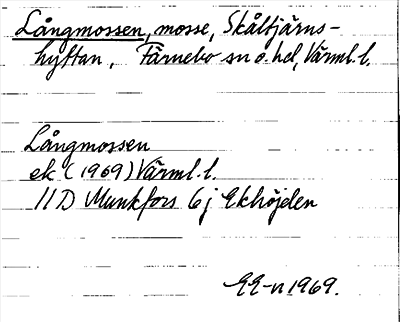 Långmossen, mosse, Skåltjärns-
hyttan, Färnebo sn o. hd, Värml. l.
Långmossen
ek. (1969) Värml. l.
11 D Munkfors 6 j Ekhöjden
EE-n 1969.